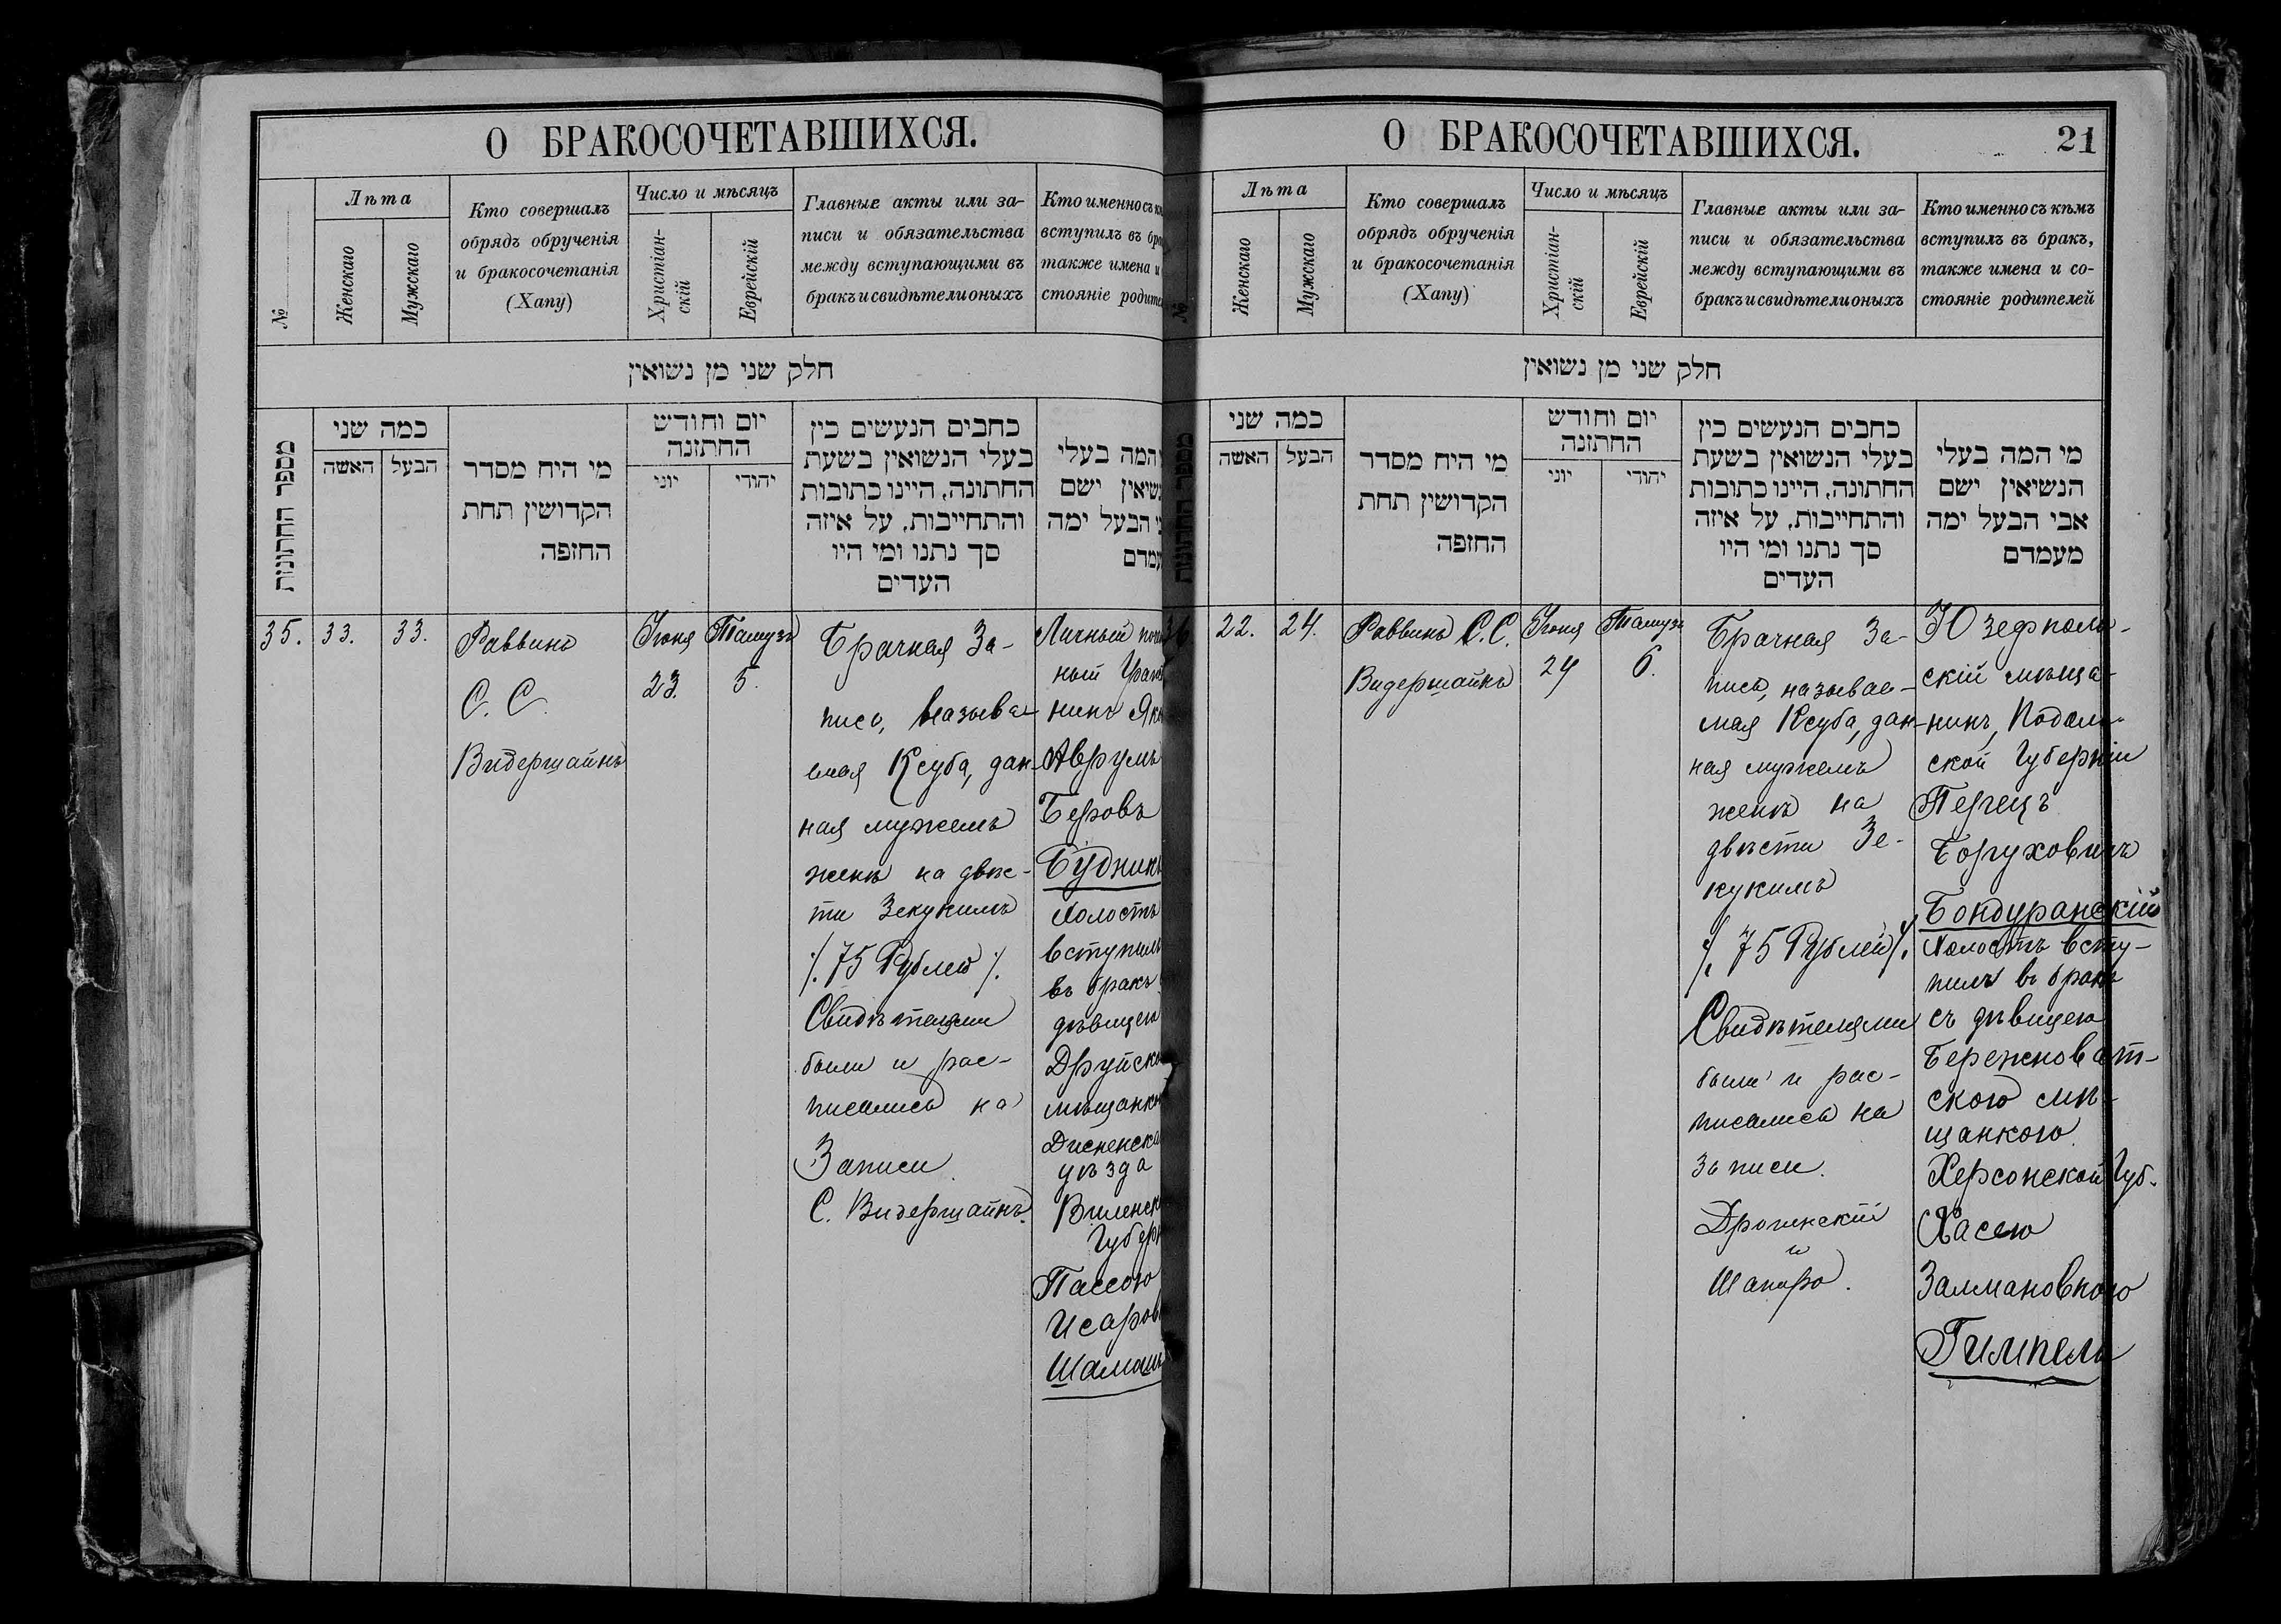 О БРАКОСОЧЕТАВШИХСЯ.
№
Лѣта
Женскаго
Мужскаго
Кто совершалъ
обрядъ обрученія
и бракосочетанія
(Хапу)
Число и мѣсяцъ
Христіан-
скій
Еврейскій
Главные акты или за-
писи и обязательства
между вступающими въ
бракъ и свидѣтели оныхъ
Кто именно съ
вступилъ въ
также имена и
стояніе
חלק שני מן נשואין
מספר החתונות
כמה שני
האשה
הבעל
מי היח מסדר
הקדושין תחת
החופה
יום וחודש
החתונה
יוני
יהודי
כחבים הנעשים כין
בעלי הנשואין בשעת
החתונה, היינו כתובות
והתחייבות, על איזה
סך נתנו ומי היו
העדים
המה בעלי
ישם
הבעל ימה
35.
33.
33.
Раввинъ
С. С.
Видершайнъ
Іюня
23.
Тамузъ
5.
Брачная За-
пись, называе-
мая Ксуба, дан-
ная мужемъ
женѣ на двѣс-
ти Зекукимъ
/. 75 Рублей /.
Свидѣтелями
были и рас-
писались на
Записи
С. Видершайнъ.
Личный
ный
нинъ
Аврумъ
Беровъ
Будникъ
холостъ
вступилъ
въ бракъ
дѣвицею
Друйско
мѣщанко
Дисненска
уѣзда
Виленск
Губерн
Пассою
Исаров
Шамаш
О БРАКОСОЧЕТАВШИХСЯ.
21
№
Лѣта
Женскаго
Мужскаго
Кто совершалъ
обрядъ обрученія
и бракосочетанія
(Хапу)
Число и мѣсяцъ
Христіан-
скій
Еврейскій
Главные акты или за-
писи и обязательства
между вступающими въ
бракъ и свидѣтели оныхъ
Кто именно съ кѣмъ
вступилъ въ бракъ,
также имена и со-
стояніе родителей
חלק שני מן נשואין
מספר החתונות
כמה שני
האשה
הבעל
מי היח מסדר
הקדושין תחת
החופה
יום וחודש
החתונה
יוני
יהודי
כחבים הנעשים כין
בעלי הנשואין בשעת
החתונה, היינו כתובות
והתחייבות, על איזה
סך נתנו ומי היו
העדים
מי המה בעלי
הנשיאין ישם
אבי הבעל ימה
מעמדם
22.
24.
Раввинъ С. С.
Видершайнъ
Іюня
24
Тамузъ
6.
Брачная За-
пись, называе-
мая Ксуба, дан-
ная мужемъ
женѣ на
двѣсти Зе-
кукимъ
/. 75 Рублей /.
Свидѣтелями
были и рас-
писались на
записи.
и
Шапиро.
Юзефполь-
скій мѣща-
нинъ, Подоль-
ской Губерніи
Перецъ
Боруховичъ
Бондуранскій
Холостъ всту-
пилъ въ бракъ
съ дѣвицею
Березноват-
скою мѣ-
щанкою
Херсонской Губ.
Хасею
Залмановною
Гимпель